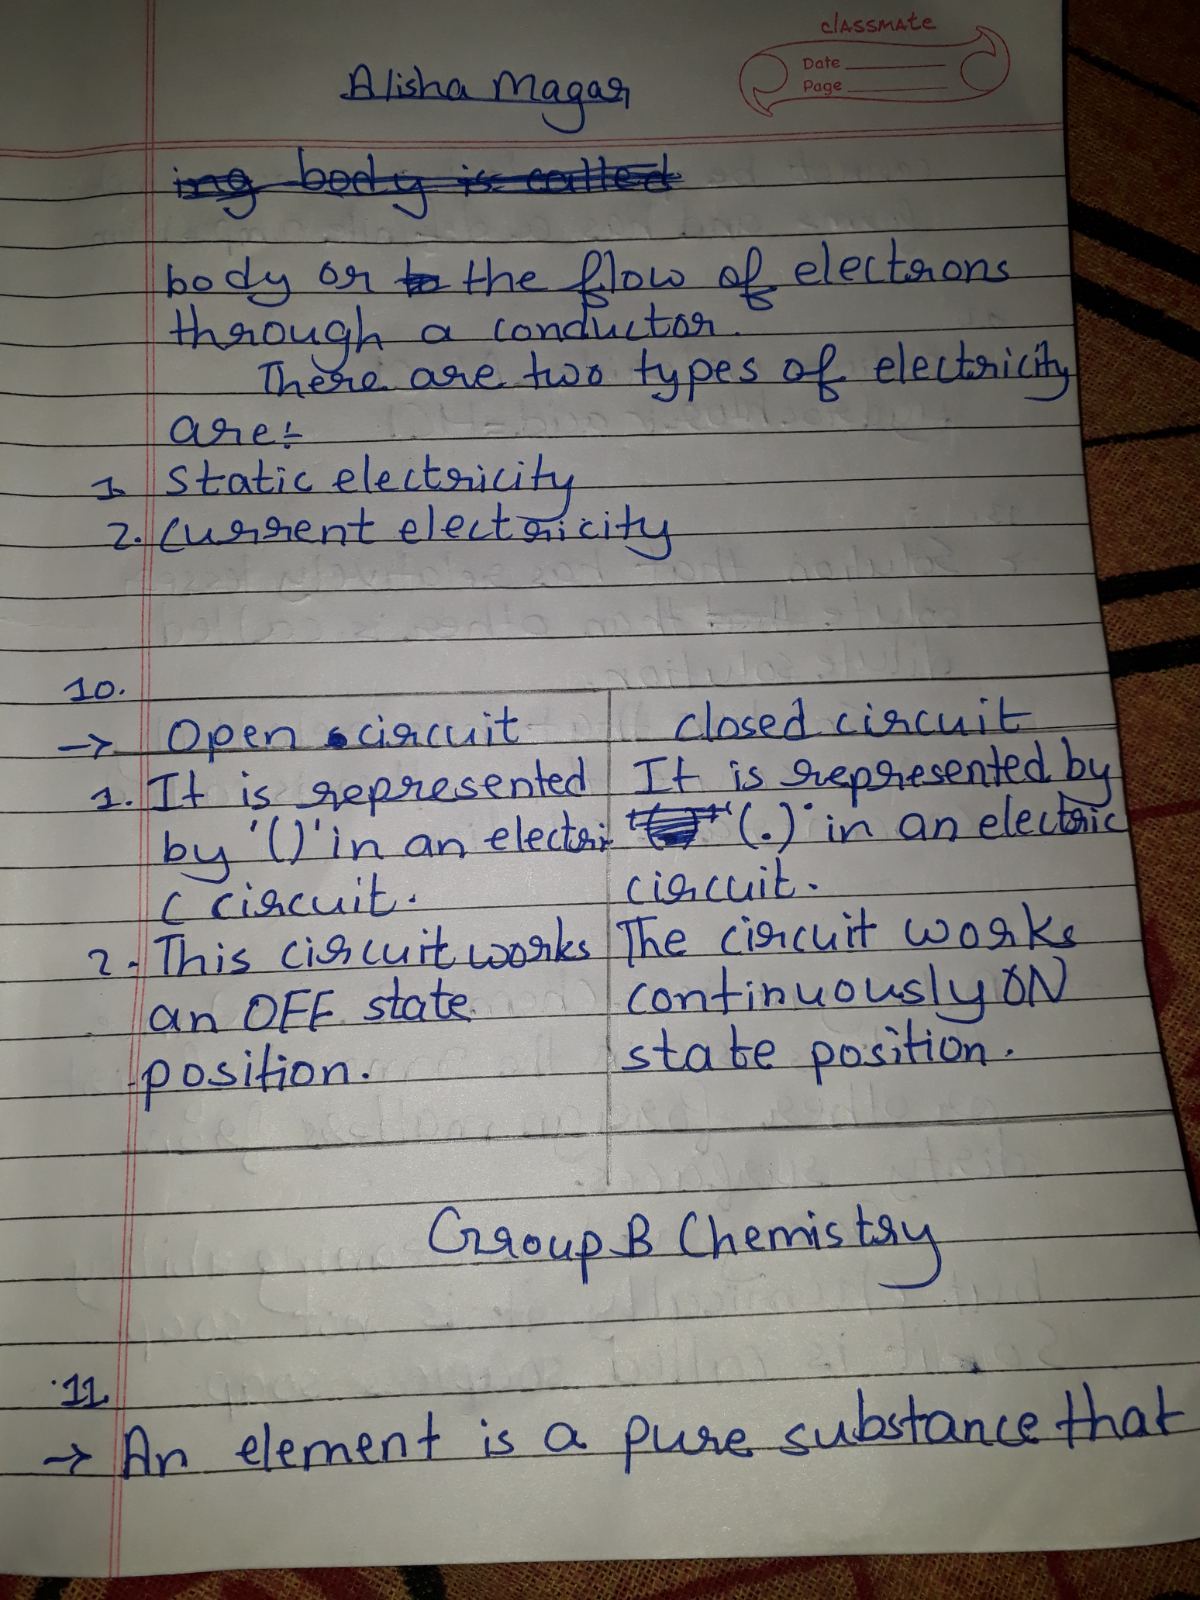 classmate
Date
Page
Alisha Magar
ing body is called
body or the flow of electrons
through a conductor.
There are two types of electricity
are:-
1. Static electricity
2. Current electricity
10.
→ Open circuit
closed circuit
1. It is represented
by '()' in an electri
c circuit.
It is represented by
'(.)' in an electric
circuit.
2. This circuit works
an OFF state
position.
The circuit works
continuously ON
state position.
Group B Chemistry
11.
→ An element is a pure substance that